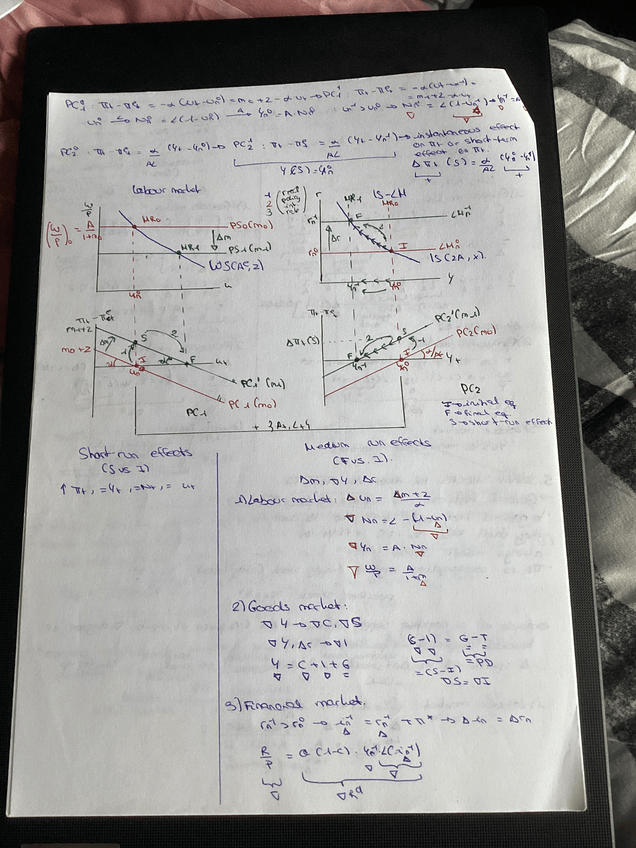 PC₁⁰: πt - πte = -α(ut - un⁰) = m₀ + z - α ut → PC₁¹: πt - πte = -α(ut - un¹) =
= m₁ + z - α ut
un¹ > un⁰ → Nn¹ = L(1 - un¹) →
PC₂⁰: πt - πte = α/AL (Yt - Yn⁰) → PC₂¹: πt - πte = α/AL (Yt - Yn¹) → instantaneous effect
on πt or short-term
effect on πt.
Y(S) = Yn⁰
Δπt (S) = α/AL (Yn⁰ - Yn¹)
Labour market
(W/P)₀ = A/1+m₀
W/P
MR₀
PS₀(m₀)
Δm
MR₁
PS₁(m₁)
WS(A^e, z)
un⁰
u
1 real
2 policy
3 int.
IS-LM
r
MR₁
MR₀
rn¹
F
LMn¹
Δr
2
rn⁰
I
LMn⁰
IS(ZA, x).
Yn¹
Yn⁰
Y
πt - πte
m₁+z
m₀+z
Δm
S
2
1
I
F
ut
un⁰
PC₁¹(m₁)
PC₁(m₀)
PC1
πt - πte
Δπt(S)
PC₂¹(m₁)
PC₂(m₀)
S
2
1
F
I
Yt
Yn¹
Yn⁰
PC2
I → initial eq
F → final eq
S → short-run effect
Short-run effects
(S vs I)
↑ πt, = Yt, = Nt, = ut
Medium run effects
(F vs. I).
Δm, ∇Y, Δr
1) Labour market: Δ un = Δm+z/α
∇ Nn = L - (1-un)
∇ Yn = A · Nn
∇ W/P = A/1+m
2) Goods market:
∇Y → ∇C, ∇S
∇Y, Δr → ∇I
Y = C + I + G
(S-I) = G - T
= (S-I) = PD
∇S = ∇I
3) Financial market.
rn¹ > rn⁰ → in¹ = rn¹ + π* → Δ in = Δrn
R/P = θ(1-c) · Yn¹ · L(in¹)
∇R^d